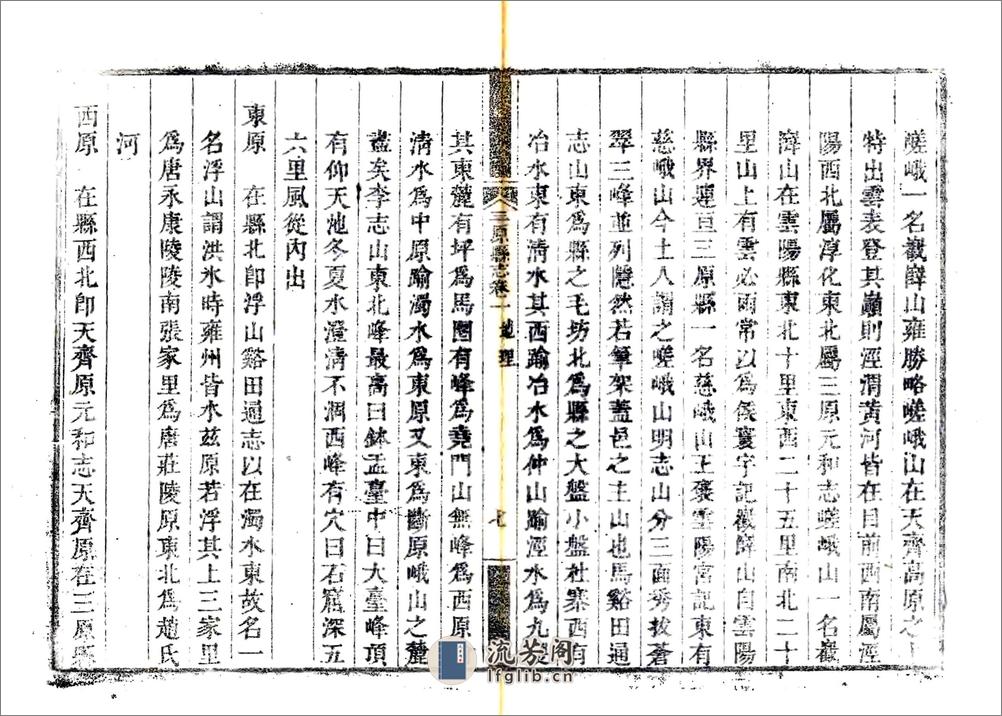 嵳峨一名嶻嶭山雍勝略嵳峨山在天齊高原之上
特出雲表登其巔則涇渭黃河皆在目前西南屬涇
陽西北屬淳化東北屬三原元和志嵳峨山一名嶻
嶭山在雲陽縣東北十里東西二十五里南北二十
里山上有雲必雨常以爲候寰宇記嶻嶭山自雲陽
縣界連亘三原縣一名慈峨山王褒雲陽宮記東有
慈峨山今土人謂之嵳峨山明志山分三面秀拔蒼
翠三峰並列隱然若筆架蓋邑之主山也馬谿田通
志山東爲縣之毛坊北爲縣之大盤小盤杜寨西有
冶水東有清水其西踰冶水爲仲山踰涇水爲九嵏
三原縣志卷一 地理
其東麓有坪爲馬圈有峰爲堯門山無峰爲西原
淸水爲中原踰濁水爲東原又東爲斷原峨山之麓
盡矣李志山東北峰最高曰鉢盂臺中曰大臺峰頂
有仰天池冬夏水澄清不涸西峰有穴曰石窟深五
六里風從內出
東原 在縣北卽浮山谿田通志以在濁水東故名一
名浮山謂洪水時雍州皆水茲原若浮其上三家里
爲唐永康陵陵南張家里爲唐莊陵原東北爲趙氏
河
西原 在縣西北卽天齊原元和志天齊原在三原縣
流芳閣
lfglib.cn